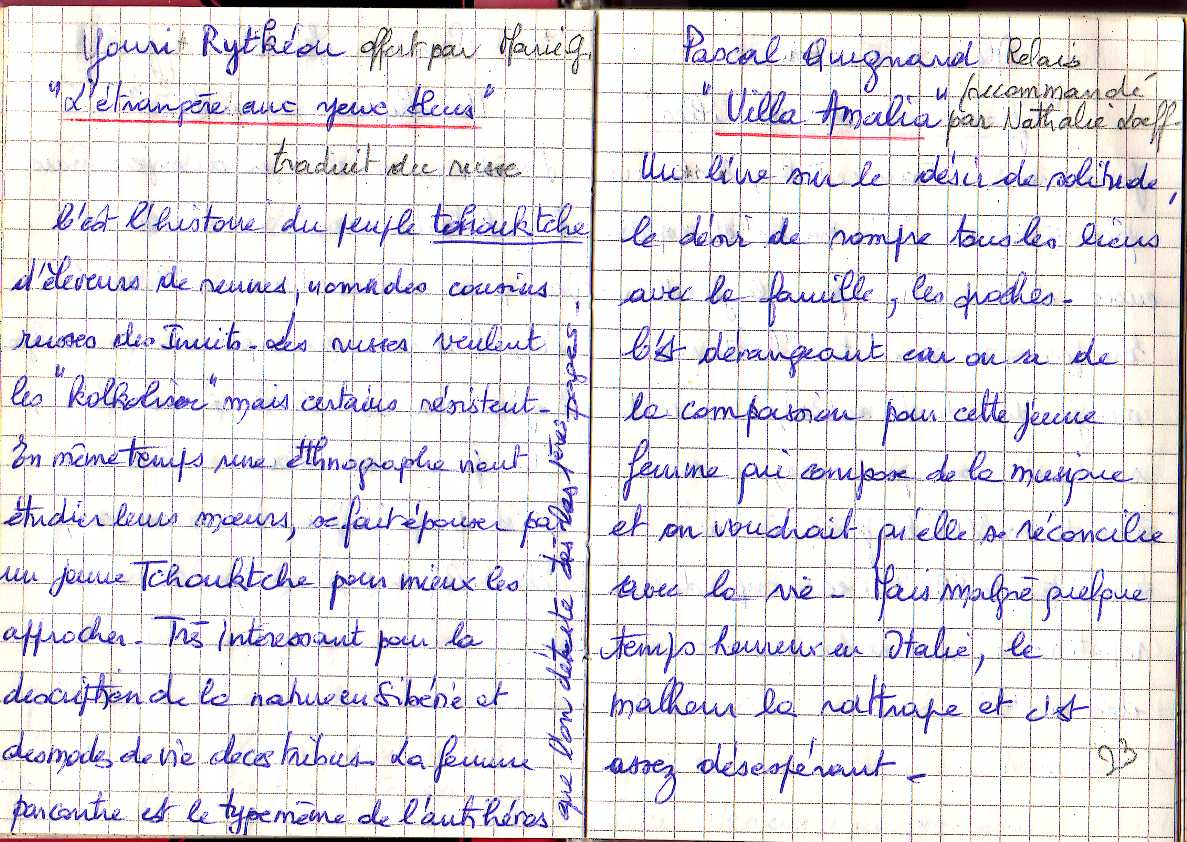 Youri Rytkéou offert par Marie G.
"L'étrangère aux yeux bleus"
traduit du russe
C'est l'histoire du peuple tchouktche
d'éleveurs de rennes, nomades cousins
russes des Inuits - Les russes veulent
les "kolkoliser" mais certains résistent -
En même temps une éthnographe vient
étudier leurs mœurs, se fait épouser par
un jeune Tchouktche pour mieux les
approcher - Très intéressant pour la
description de la nature en Sibérie et
des modes de vie de ces tribus - La femme
par contre est le type même de l'antihéros
que l'on déteste dès les 1ères pages -
Pascal Quignard Relais
"Villa Amalia" recommandé
par Nathalie
Un livre sur le désir de solitude,
le désir de rompre tous les liens
avec la famille, les proches -
C'est dérangeant car on a de
la compassion pour cette jeune
femme qui compose de la musique
et on voudrait qu'elle se réconcilie
avec la vie - Mais malgré quelque
temps heureux en Italie, le
malheur la rattrape et c'est
assez désespérant -
23